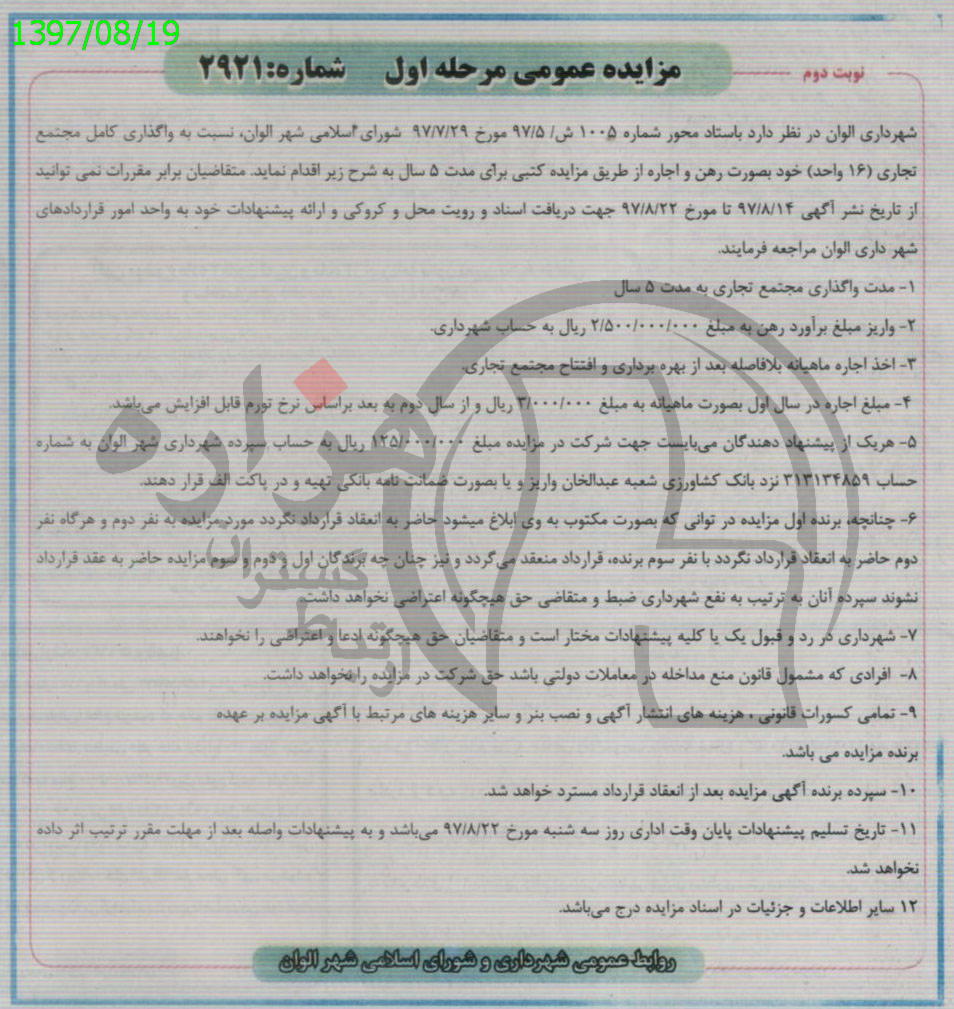 1397/08/19
نوبت دوم
مزایده عمومی مرحله اول شماره:۲۹۲۱
شهرداری الوان در نظر دارد باستاد محور شماره ۱۰۰۵ ش/ ۹۷/۵ مورخ ۹۷/۷/۲۹ شورای اسلامی شهر الوان، نسبت به واگذاری کامل مجتمع
تجاری (۱۶ واحد) خود بصورت رهن و اجاره از طریق مزایده کتبی برای مدت ۵ سال به شرح زیر اقدام نماید. متقاضیان برابر مقررات نمی توانید
از تاریخ نشر آگهی ۹۷/۸/۱۴ تا مورخ ۹۷/۸/۲۲ جهت دریافت اسناد و رویت محل و کروکی و ارائه پیشنهادات خود به واحد امور قراردادهای
شهر داری الوان مراجعه فرمایند.
۱- مدت واگذاری مجتمع تجاری به مدت ۵ سال
۲- واریز مبلغ برآورد رهن به مبلغ ۲/۵۰۰/۰۰۰/۰۰۰ ریال به حساب شهرداری.
۳- اخذ اجاره ماهیانه بلافاصله بعد از بهره برداری و افتتاح مجتمع تجاری.
۴- مبلغ اجاره در سال اول بصورت ماهیانه به مبلغ ۳/۰۰۰/۰۰۰ ریال و از سال دوم به بعد براساس نرخ تورم قابل افزایش می‌باشد.
۵- هریک از پیشنهاد دهندگان می‌بایست جهت شرکت در مزایده مبلغ ۱۲۵/۰۰۰/۰۰۰ ریال به حساب سپرده شهرداری شهر الوان به شماره
حساب ۳۱۳۱۳۴۸۵۹ نزد بانک کشاورزی شعبه عبدالخان واریز و یا بصورت ضمانت نامه بانکی تهیه و در پاکت الف قرار دهند.
۶- چنانچه، برنده اول مزایده در توانی که بصورت مکتوب به وی ابلاغ میشود حاضر به انعقاد قرارداد نگردد مورد مزایده به نفر دوم و هرگاه نفر
دوم حاضر به انعقاد قرارداد نگردد با نفر سوم برنده، قرارداد منعقد می گردد و نیز چنان چه برندگان اول و دوم و سوم مزایده حاضر به عقد قرارداد
نشوند سپرده آنان به ترتیب به نفع شهرداری ضبط و متقاضی حق هیچگونه اعتراضی نخواهد داشت.
۷- شهرداری در رد و قبول یک یا کلیه پیشنهادات مختار است و متقاضیان حق هیچگونه ادعا و اعتراضی را نخواهند.
۸- افرادی که مشمول قانون منع مداخله در معاملات دولتی باشد حق شرکت در مزایده را نخواهد داشت.
۹- تمامی کسورات قانونی ، هزینه های انتشار آگهی و نصب بنر و سایر هزینه های مرتبط با آگهی مزایده بر عهده
برنده مزایده می باشد.
۱۰- سپرده برنده آگهی مزایده بعد از انعقاد قرارداد مسترد خواهد شد.
۱۱- تاریخ تسلیم پیشنهادات پایان وقت اداری روز سه شنبه مورخ ۹۷/۸/۲۲ می‌باشد و به پیشنهادات واصله بعد از مهلت مقرر ترتیب اثر داده
نخواهد شد.
۱۲ سایر اطلاعات و جزئیات در اسناد مزایده درج می‌باشد.
روابط عمومی شهرداری و شورای اسلامی شهر الوان
هزاره
گستران
ارتباط